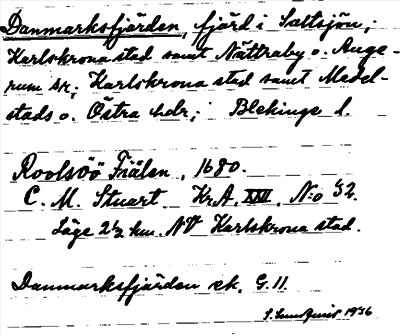 Danmarksfjärden, fjärd i Saltsjön;
Karlskrona stad samt Nättraby o. Auge-
rum skr; Karlskrona stad samt Medel-
stads o. Östra hdr; Blekinge l.
Roolsöö Fiälen, 1680.
C. M. Stuart Kr.A. XXII, N:o 32.
Läge 2½ km. NV Karlskrona stad.
Danmarksfjärden ek. G. 11.
S. Lundquist 1936